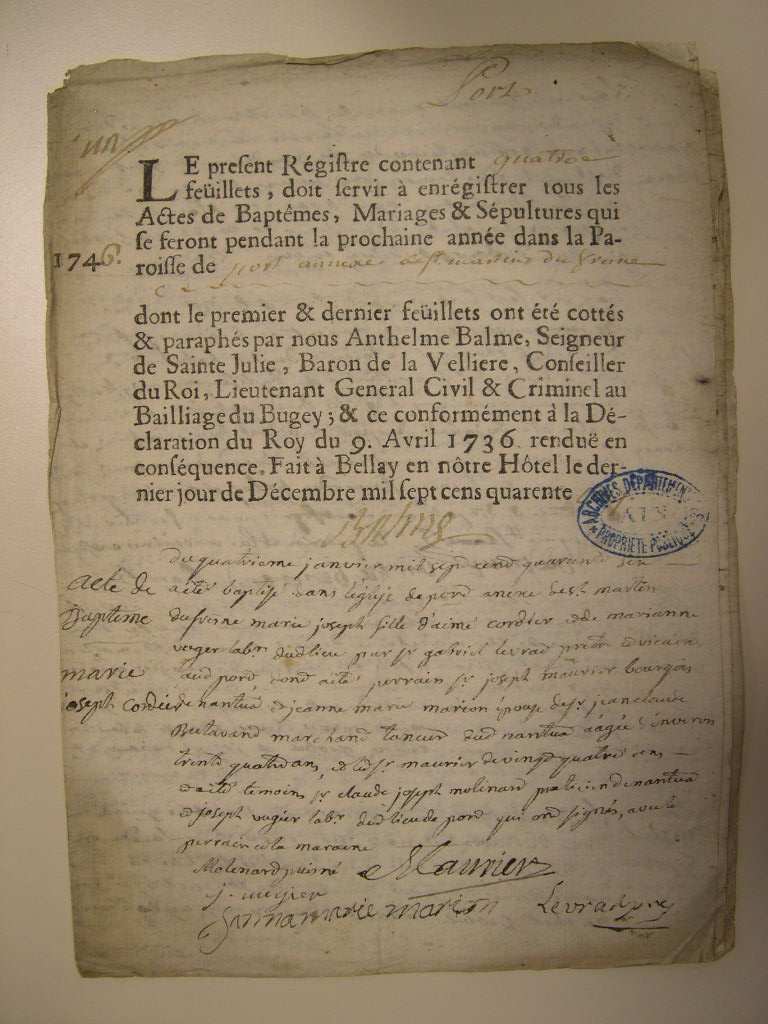 Port
un
LE present Régistre contenant quatre
feüillets, doit servir à enrégistrer tous les
Actes de Baptêmes, Mariages & Sépultures qui
se feront pendant la prochaine année dans la Pa-
1746.
roisse de port annexe de st martin du fresne
dont le premier & dernier feüillets ont été cottés
& paraphés par nous Anthelme Balme, Seigneur
de Sainte Julie, Baron de la Velliere, Conseiller
du Roi, Lieutenant General Civil & Criminel au
Bailliage du Bugey; & ce conformément à la Dé-
claration du Roy du 9. Avril 1736. renduë en
conséquence. Fait à Bellay en nôtre Hôtel le der-
nier jour de Décembre mil sept cens quarente
ARCHIVES DÉPARTEMEN
PROPRIÉTÉ PUBLIQUE
Balme
Du quatrieme janvier mil sept cend quarante six
acte de
Bapteme
marie
joseph Cordier
a été baptisé dans l'église de pord anexe de st martin
du fresne marie joseph fille d'aimé cordier et de marianne
vugier labr dudlieu par sr gabriel levrad pretre et vicaire
aud pord ond aété perrain sr joseph maurier bourgois
de nantua et jeanne marie marion épouse de sr jeanclaude
marchand taneur dud nantua aagée d'environ
trente quatre ans, et led sr maurier de vingt quatre ans
et aété temoins sr claude joseph molinard praticien de nantua
et joseph vugier labr dudlieu de pord qui ond signés, avec le
perrain et la maraine
Molinard puisné
Maurier
j. vugier
janna marie marion
Levrad ptre